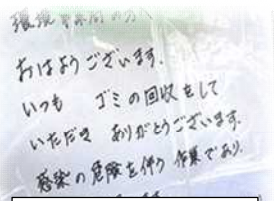 環境事業局の方へ
おはようございます.
いつも ゴミの回収をして
いただき ありがとうございます.
感染の危険を伴う 作業であり.